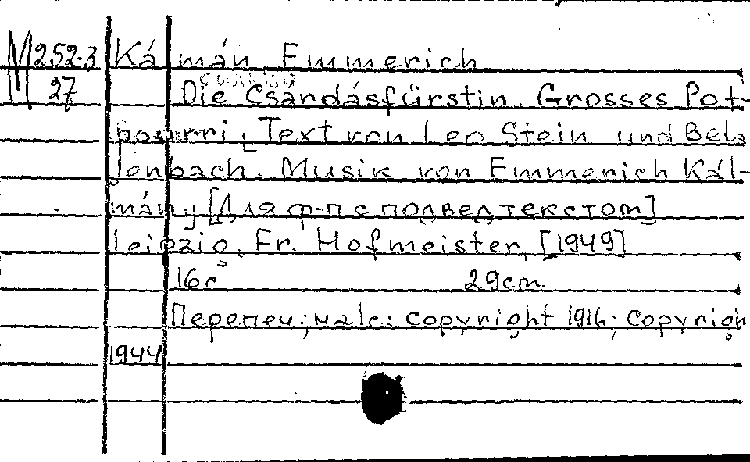 M 252-3 Kálmán, Emmerich
27 Die Csárdásfürstin. Grosses Pot-
pourri. Text von Leo Stein und Bela
Jenbach. Musik von Emmerich Kál-
mán, [Для ф-п с подвед. текстом]
Leipzig, Fr. Hofmeister, [1949]
16 с 29 cm.
Перепеч.; copyright 1916; Copyrigh
1944